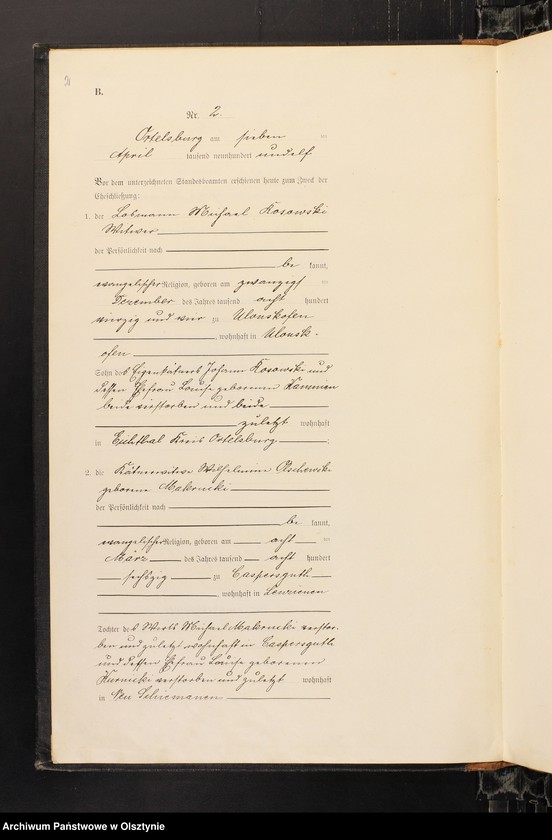 B.
Nr. 2.
Ortelsburg am sieben
April tausend neunhundert und elf
Vor dem unterzeichneten Standesbeamten erschienen heute zum Zweck der
Eheschließung:
1. der Losmann Michael Kosowski
Witwer
der Persönlichkeit nach
be kannt,
evangelischer Religion, geboren am zwanzigs ten
Dezember des Jahres tausend acht hundert
vierzig und vier zu Ulonskofen
, wohnhaft in Ulonsk-
ofen
Sohn des Eigenkätners Johann Kosowski und
dessen Ehefrau Louise geborenen
beide verstorben und beide
zuletzt wohnhaft
in Eichthal Kreis Ortelsburg ;
2. die Kätnerwitwe Wilhelmine
geborene Makrucki
der Persönlichkeit nach
be kannt,
evangelischer Religion, geboren am acht ten
März des Jahres tausend acht hundert
sechszig zu Caspersguth
, wohnhaft in
Tochter des Wirts Michael Makrucki verstor-
ben und zuletzt wohnhaft in Caspersguth
und dessen Ehefrau Louise geborenen
Kurnicki verstorben und zuletzt wohnhaft
in Neu Schiemanen
Archiwum Państwowe w Olsztynie